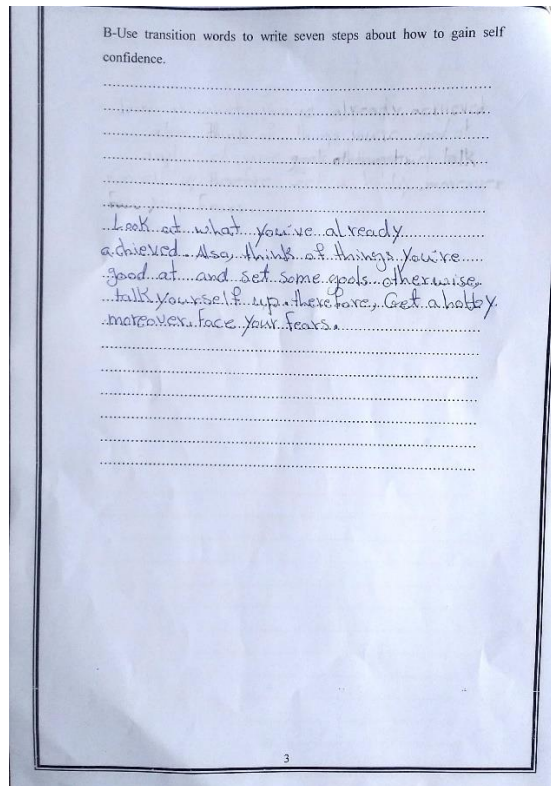 B-Use transition words to write seven steps about how to gain self
confidence.
Look at what you've already
achieved. Also, think of things you're
good at and set some goals otherwise,
talk yourself up. therefore, Get a hobby.
moreover, face your fears.
3